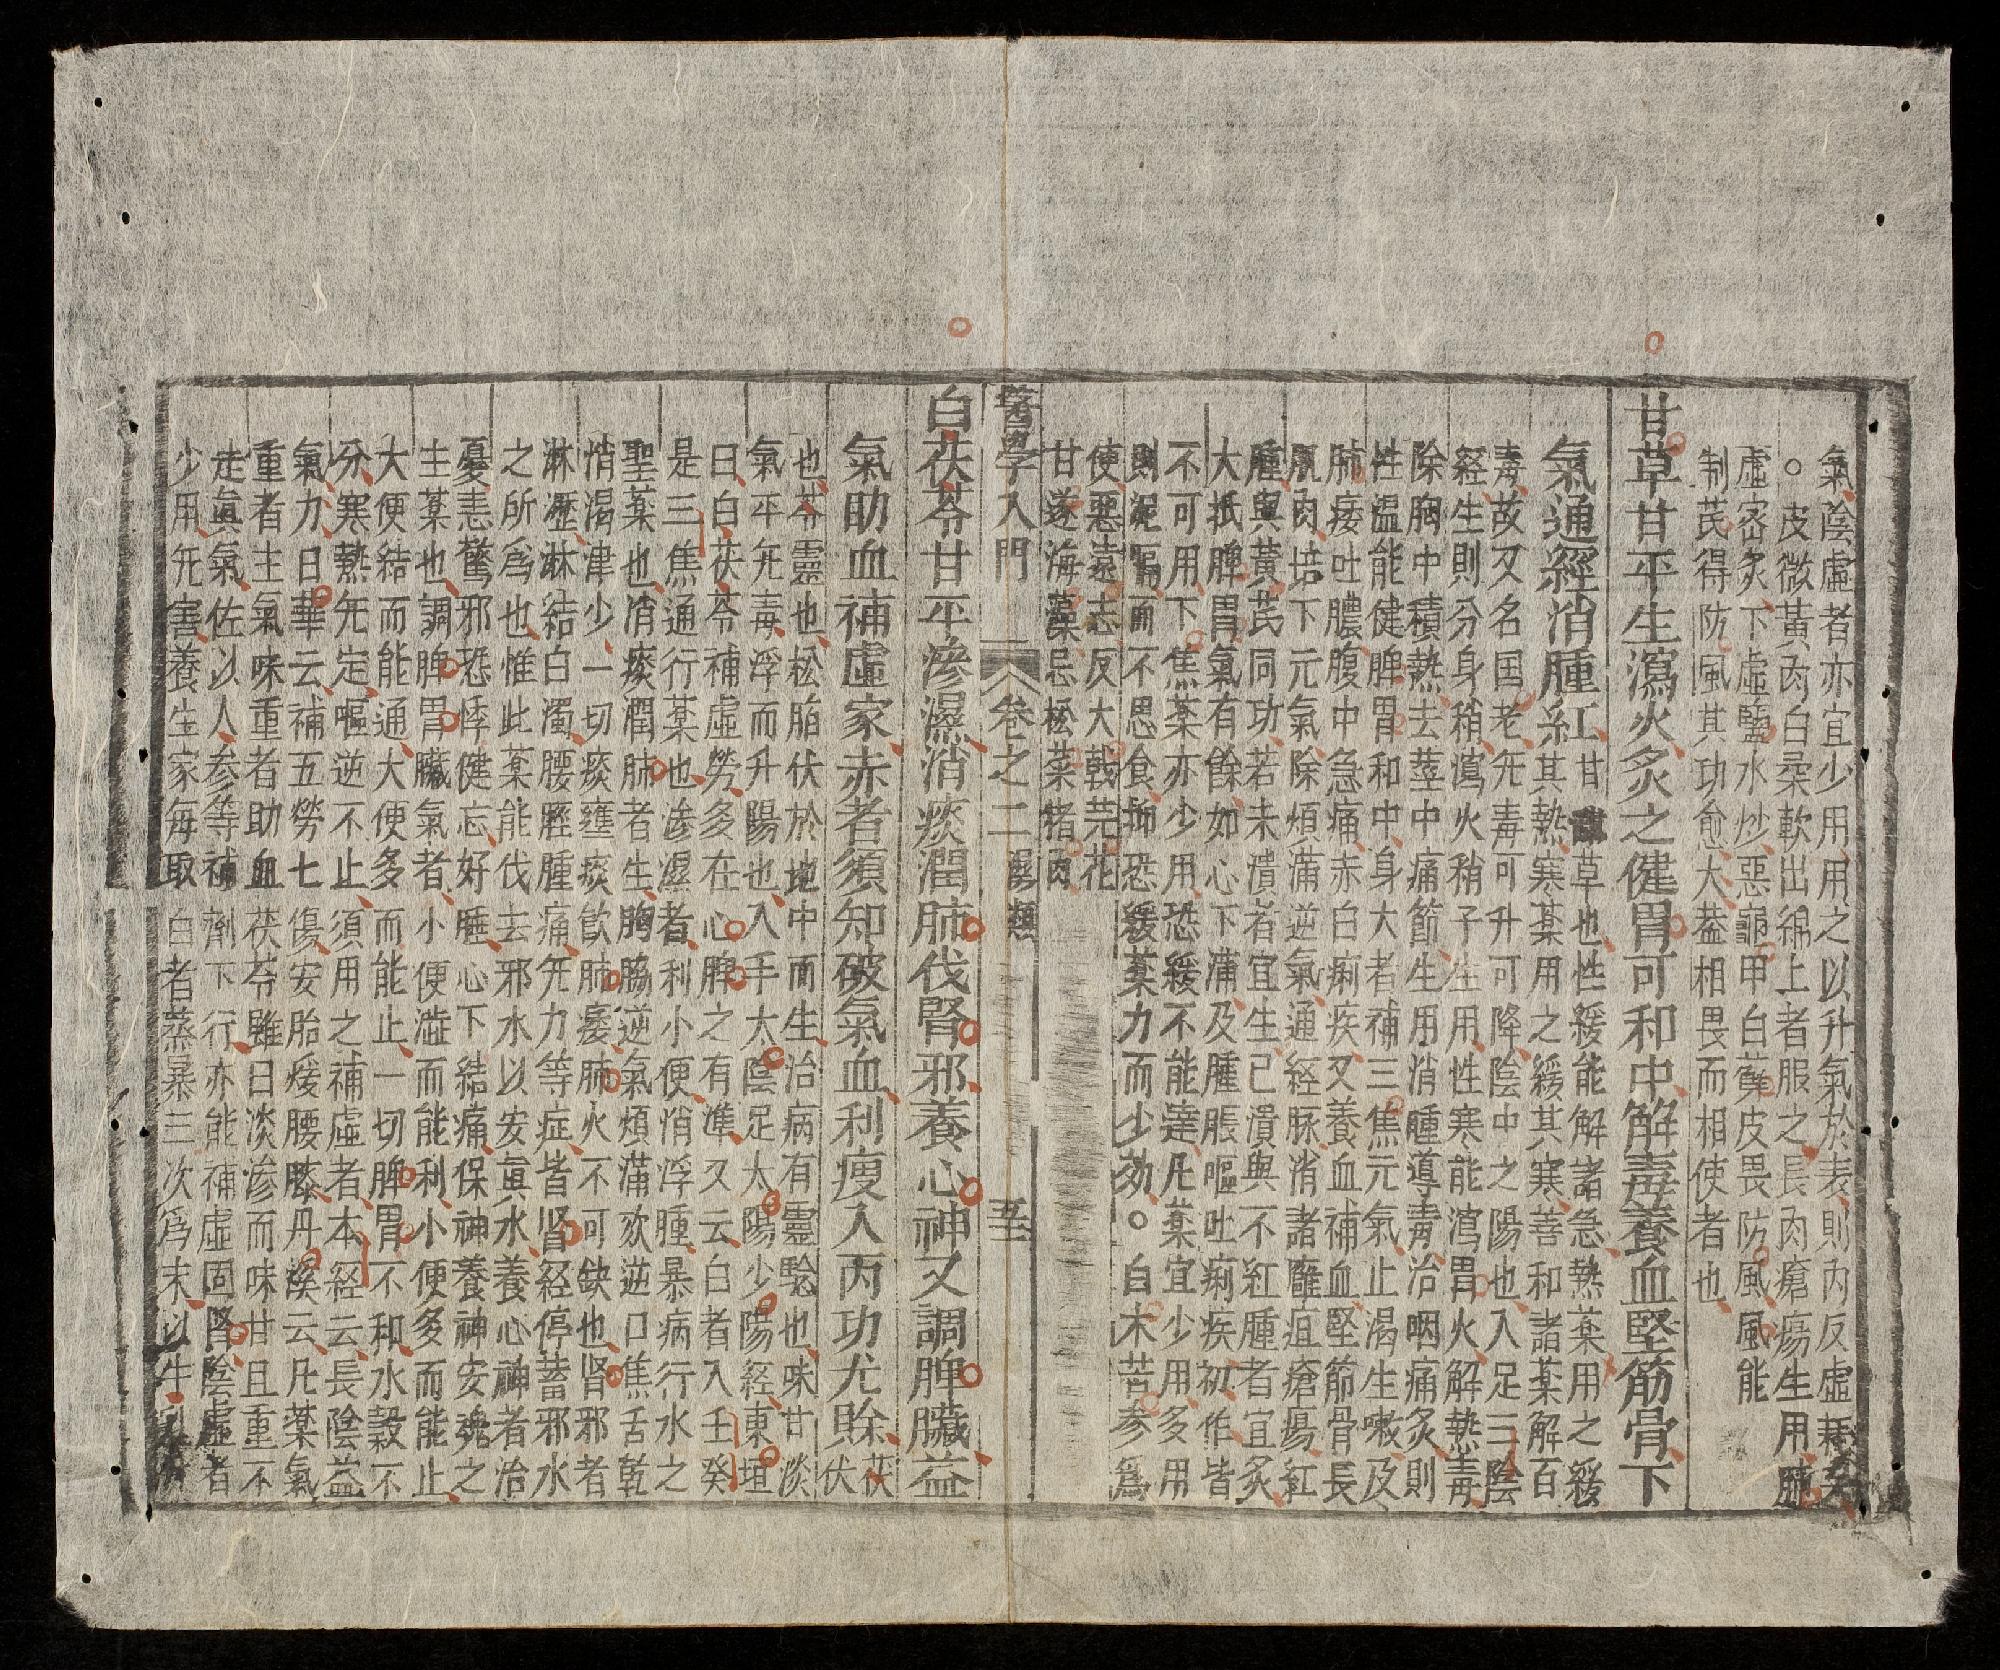 氣陰虛者亦宜少用用之以升氣於表則內反虛耗矣
○皮微黃肉白柔軟出綿上者服之長肉瘡瘍生用肺
虛宻炙下虛鹽水炒惡龜甲白蘚皮畏防風風能
制芪得防風其功愈大葢相畏而相使者也
甘草甘平生瀉火炙之健胃可和中解毒養血堅筋骨下
氣通經消腫紅甘
甘草也性緩能解諸急熱藥用之緩
其熱寒藥用之緩其寒善和諸藥解百
毒故又名国老旡毒可升可降陰中之陽也入足三陰
經生則分身稍瀉火稍子生用性寒能瀉胃火解熱毒
除胸中積熱去莖中痛節生用消腫導毒治咽痛炙則
性温能健脾胃和中身大者補三焦元氣止渴生嗽及
肺痿吐膿腹中急痛赤白痢疾又養血補血堅筋骨長
肌肉培下元氣除煩滿逆氣通經脉消諸癰疽瘡瘍紅
腫與黃芪同功若未潰者宜生已潰與不紅腫者宜炙
大抵脾胃氣有餘如心下滿及腫脹嘔吐痢疾初作皆
不可用下焦藥亦少用恐緩不能達凡藥宜少用多用
則泥膈而不思食抑恐緩藥力而少効○白朮苦參爲
使惡遠志反大戟芫花
甘遂海藻忌松菜猪肉
醫學入門 卷之二 濕類 五十二
白茯苓甘平滲濕消痰潤肺伐腎邪養心神又調脾臟益
氣助血補虛家赤者須知破氣血利瘦入丙功尤賒茯
伏
也苓靈也松脂伏於地中而生治病有靈騐也味甘淡
氣平旡毒浮而升陽也入手太陰足太陽少陽經東垣
曰白茯苓補虛勞多在心脾之有準又云白者入壬癸
是三焦通行藥也滲濕者利小便消浮腫暴病行水之
聖藥也消痰潤肺者生胸脇逆氣煩滿欬逆口焦舌乾
悄渴津少一切痰壅痰飮肺痿肺火不可缺也肾邪者
淋瀝淋結白濁腰脛腫痛旡力等症皆肾經停蓄邪水
之所爲也惟此藥能伐去邪水以安眞水養心神者治
憂恚驚邪恐悸健忘好睡心下結痛保神養神安魂之
主藥也調脾胃臟氣者小便澁而能利小便多而能止
大便結而能通大便多而能止一切脾胃不和水穀不
分寒熱旡定嘔逆不止須用之補虛者本經云長陰益
氣力日華云補五勞七傷安胎煖腰膝丹溪云凡藥氣
重者主氣味重者助血茯苓雖曰淡滲而味甘且重不
走眞氣佐以人參等補劑下行亦能補虛固腎陰虛者
少用旡害養生家每取白者蒸暴三次爲末以牛